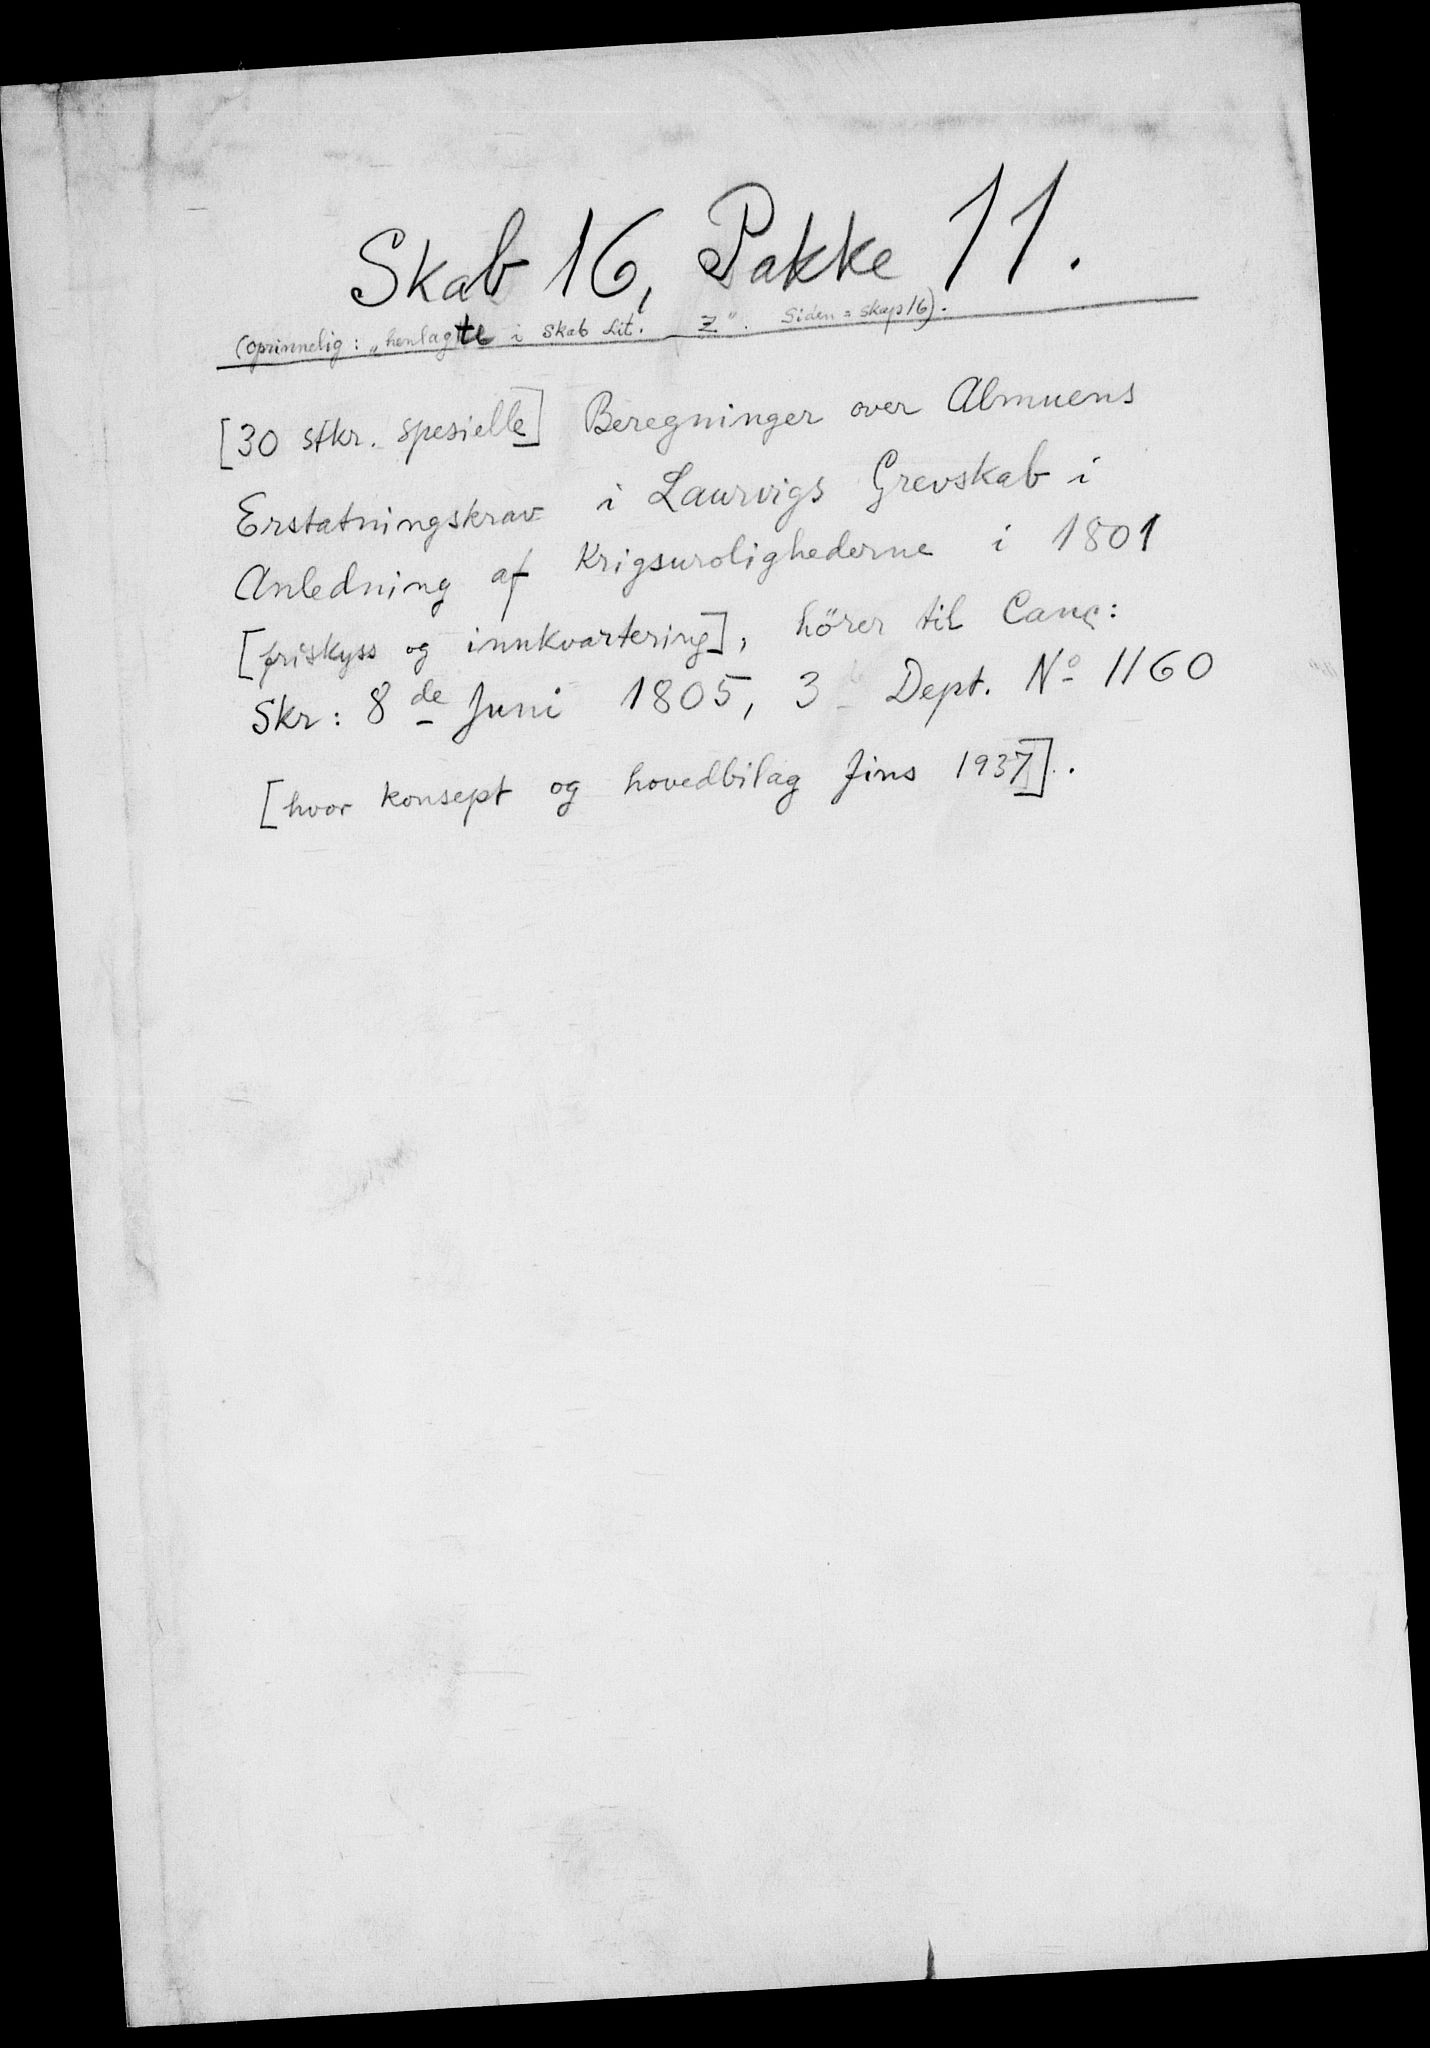 Skab 16, Pakke 11.
(oprinnelig: „henlagte i Skab Lit. Z". Siden = skap 16).
[30 stkr. spesielle] Beregninger over Almuens
Erstatningskrav i Laurvigs Grevskab i
Anledning af Krigsurolighederne i 1801
[friskyss og innkvartering], hörer til Canc:
Skr: 8de Juni 1805, 3 Dept. No 1160
[hvor konsept og hovedbilag fins 1937].